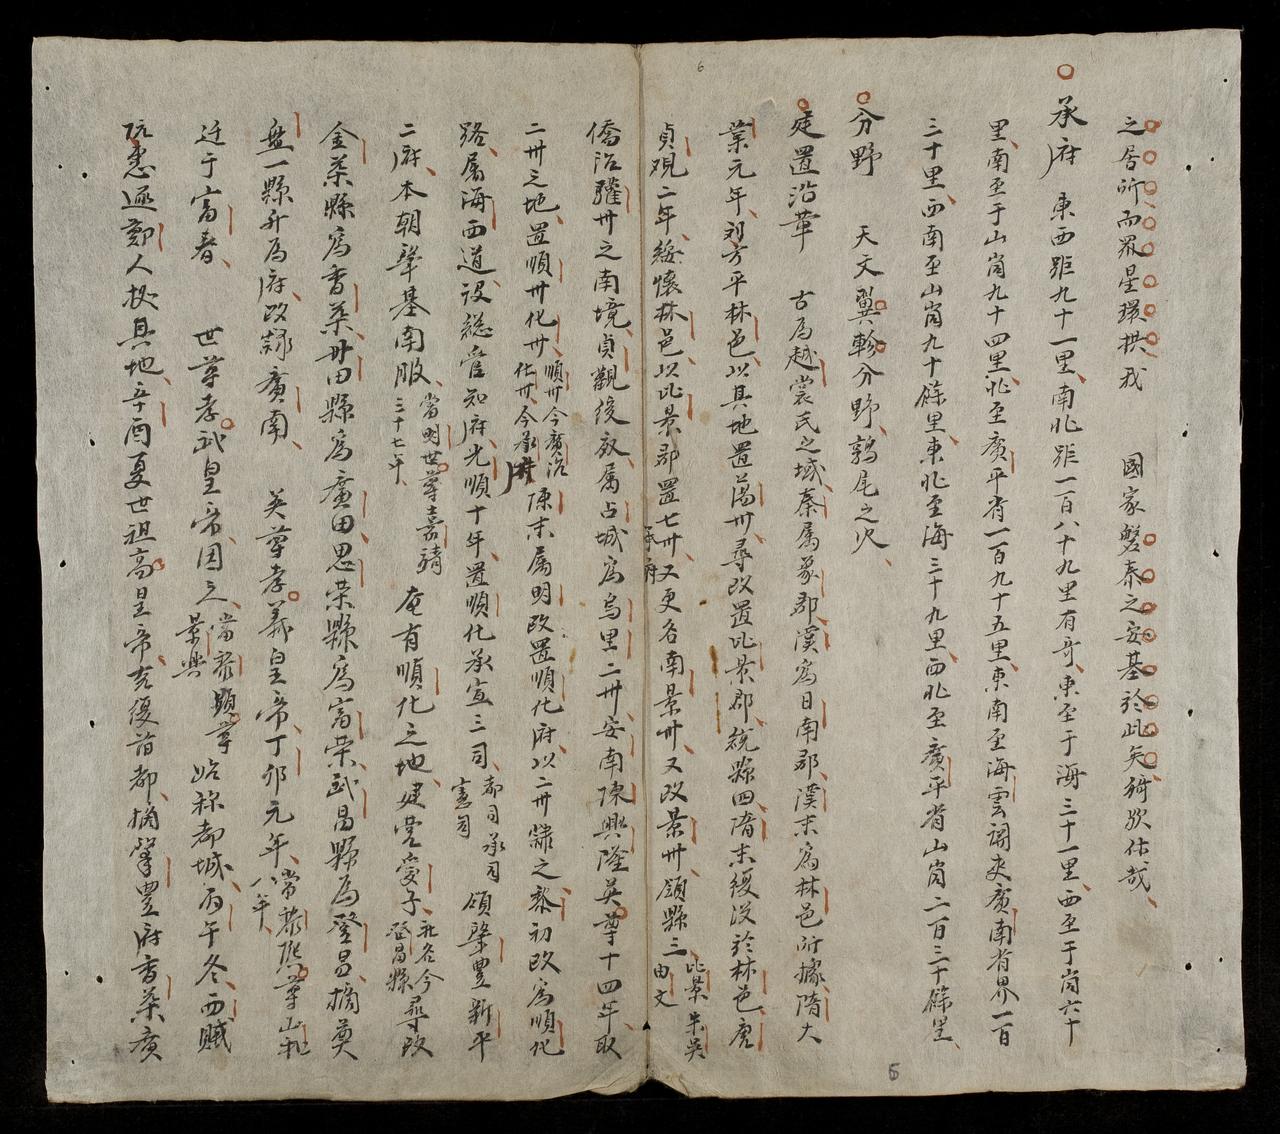 之居所而眾星環拱我　國家磐泰之安基於此矣猗歟休哉
承府　東西距九十一里南北距一百八十九里有奇東至于海三十一里西至于崗六十
里南至于山崗九十四里北至廣平省一百九十五里東南至海雲關夾廣南省界一百
三十里西南至山崗九十餘里東北至海三十九里西北至廣平省山崗二百三十餘里
分野　天文翼軫分野鶉尾之次
建置沿革　古為越裳氏之域秦属象郡漢為日南郡漢末為林邑所據隋大
業元年刘方平林邑以其地置蕩卅尋改置比景郡統縣四隋末復没於林邑唐
貞观二年綏懷林邑以比景郡置七卅又更名南景卅又改景卅領縣三比景朱吳由文
承府
僑治驩卅之南境貞觀後放属占城為烏里二卅安南陳興隆英尊十四年取
二卅之地置順卅化卅順卅今廣治化卅今承府陳末属明改置順化府以二卅隸之黎初改為順化
路属海西道設総管知府光順十年置順化承宣三司都司承司憲司領肇豐新平
二府本朝肇基南服當明世尊嘉靖三十七年奄有順化之地建営愛子社名今登昌縣尋改
金茶縣為香茶丹田縣為廣田思荣縣為富荣武昌縣為登昌摘奠
盤一縣升為府改隸廣南　英尊孝義皇帝丁卯元年當黎熙尊正和八年
迁于富春　世尊孝武皇帝因之當黎顯尊景興始称都城丙午冬西賊
阮惠逐鄭人挍其地辛酉夏世祖高皇帝克復旧都摘肇豐府香茶廣
6
5